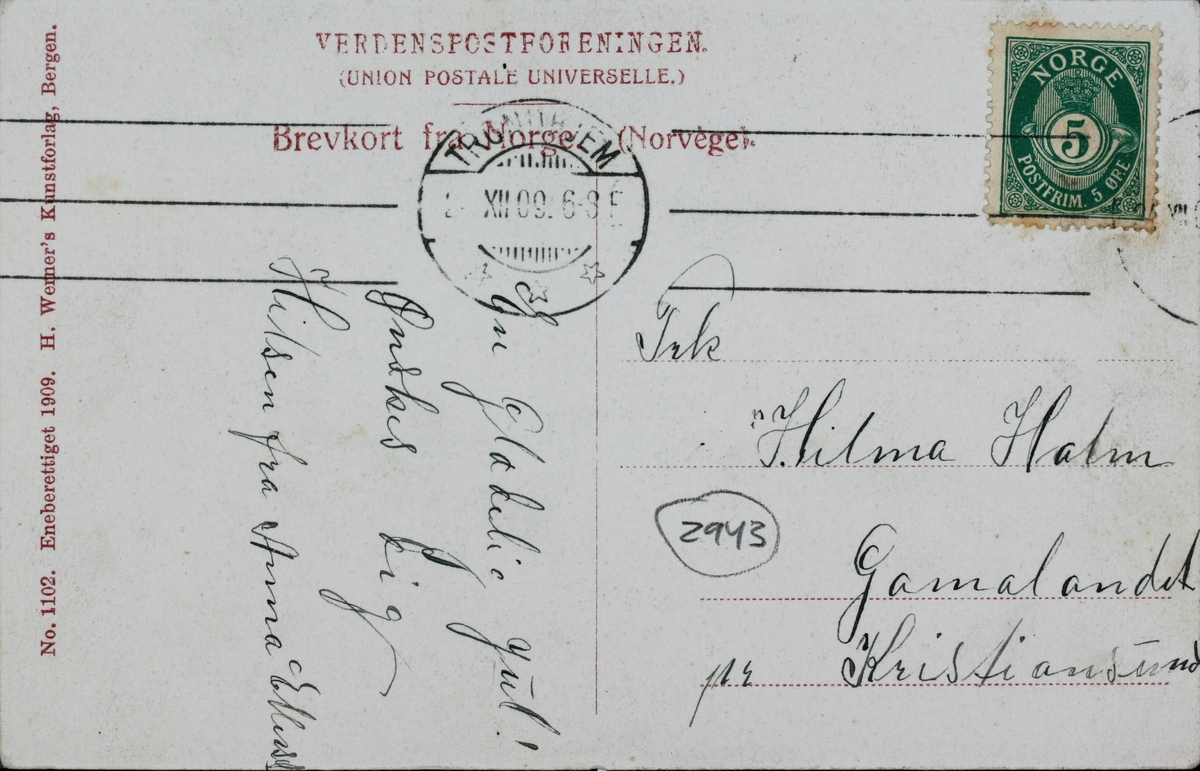 VERDENSPOSTFORENINGEN.
(UNION POSTALE UNIVERSELLE.)
Brevkort fra Norge (Norvège).
TRONDHJEM
XII 09. 6-8 E
NORGE
5
POSTFRIM. 5 ØRE
No. 1102. Eneberettiget 1909. H. Werner's Kunstforlag, Bergen.
En Glædelig Jul!
Ønskes Dig
Hilsen fra Anna
Frk
Hilma Halm
2943
Gamalandet
pr Kristiansund